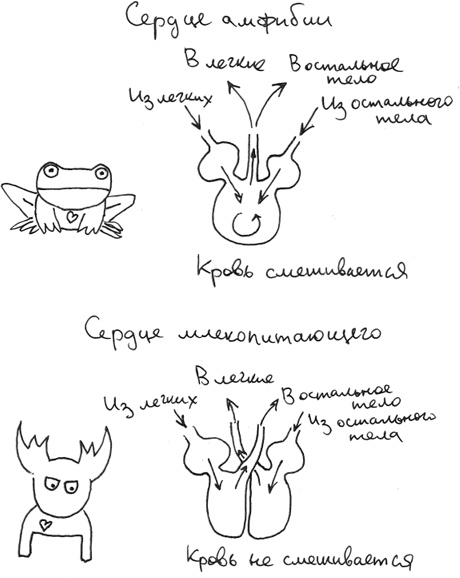 Сердце амфибии
В легкие
В остальное
тело
Из легких
Из остального
тела
Кровь смешивается
Сердце млекопитающего
В легкие
Из легких
В остальное
тело
Из остального
тела
Кровь не смешивается